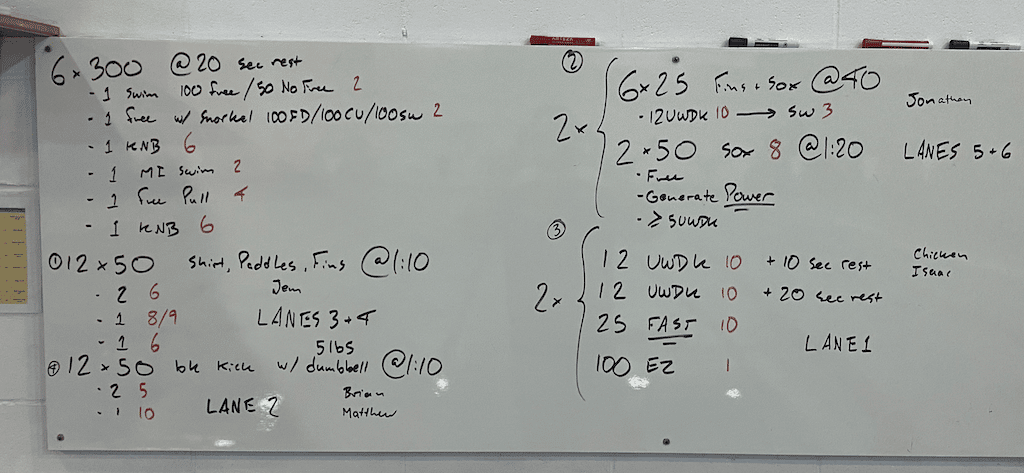 6 × 300 @20 sec rest
- 1 Swim 100 free / 50 No Free 2
- 1 free w/ Snorkel 100FD/100CU/100SW 2
- 1 KNB 6
- 1 MI Swim 2
- 1 Free Pull 4
- 1 KNB 6
① 12 × 50 Shirt, Paddles, Fins @1:10
- 2 6
- 1 8/9
- 1 6
Jem
LANES 3+4
5lbs
④ 12 × 50 bk Kick w/ dumbbell @1:10
- 2 5
- 1 10
LANE 2
Brian
Matthew
②
2 ×
6 × 25 Fins + Sox @40
- 12UWDK 10 → SW 3
2 × 50 SOX 8 @1:20
- Free
- Generate Power
- ≥ 5UWDK
Jonathan
LANES 5+6
③
2 ×
12 UWDK 10 + 10 sec rest
12 UWDK 10 + 20 sec rest
25 FAST 10
100 EZ 1
Chicken
Isaac
LANE 1